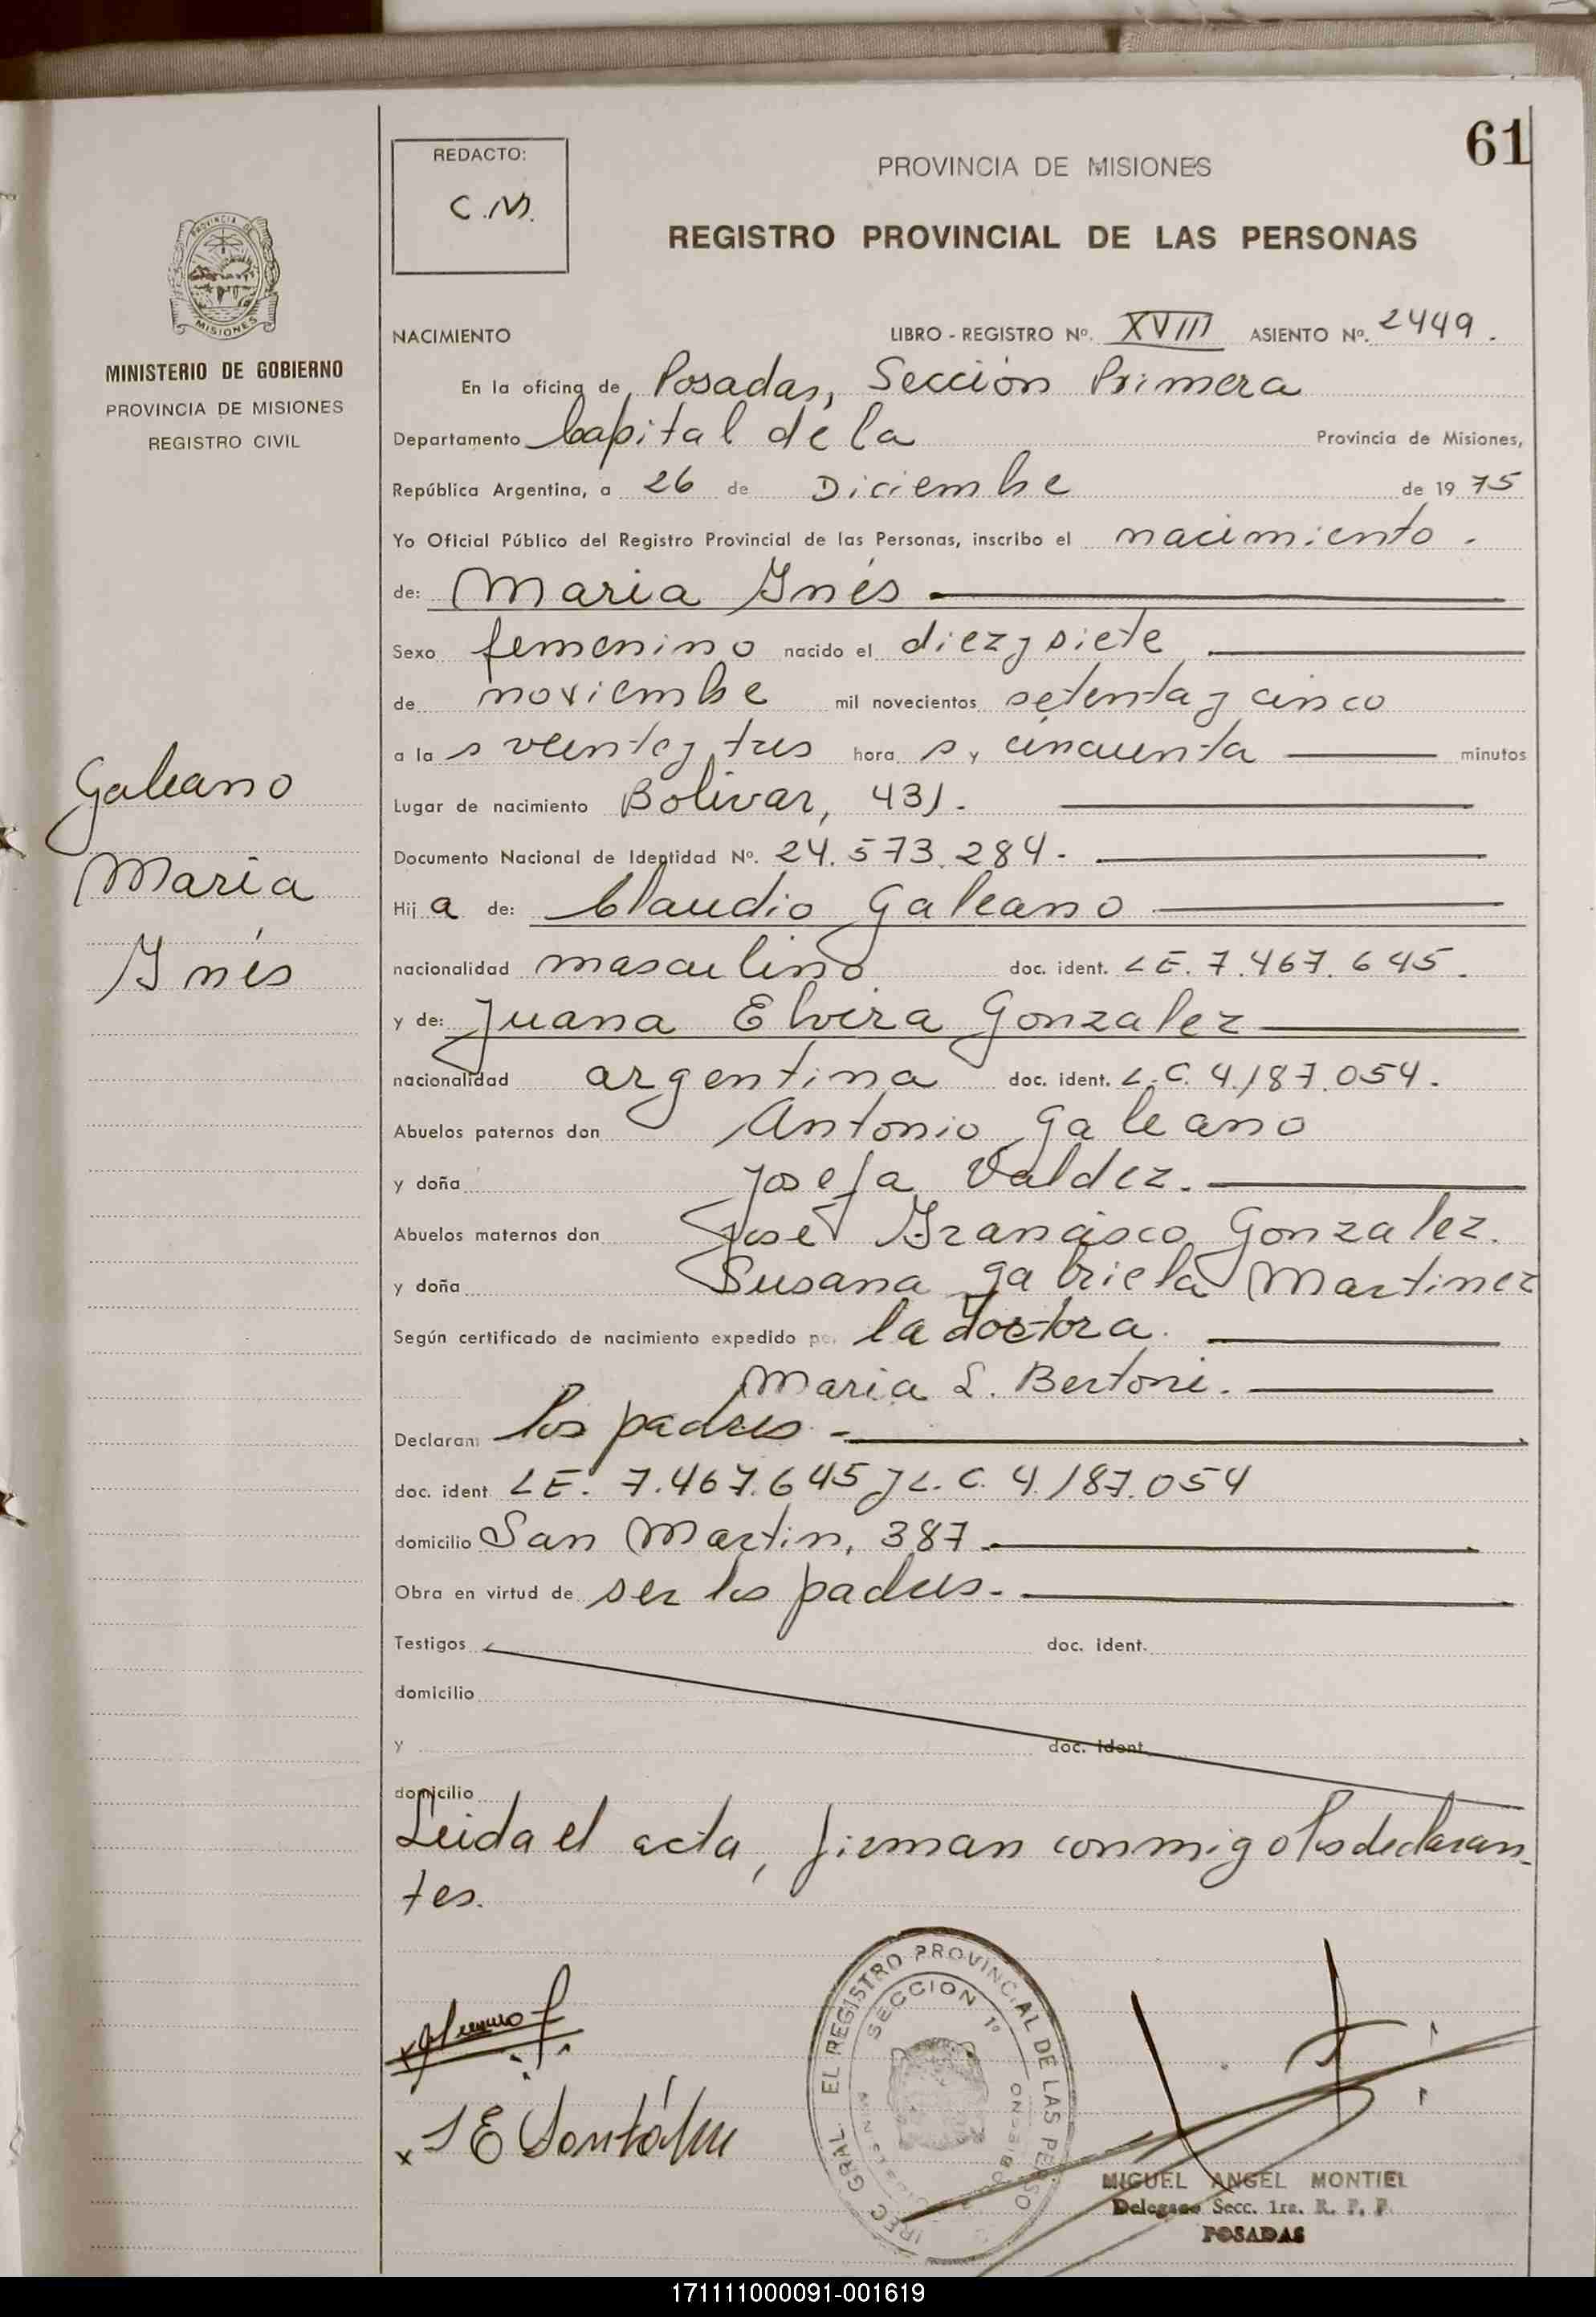 61
REDACTO:
C.M.
PROVINCIA DE MISIONES
REGISTRO PROVINCIAL DE LAS PERSONAS
PROVINCIA DE
MISIONES
MINISTERIO DE GOBIERNO
PROVINCIA DE MISIONES
REGISTRO CIVIL
Galeano
Maria
Inés
NACIMIENTO LIBRO - REGISTRO Nº. XVIII ASIENTO Nº. 2449.
En la oficina de Posadas, Sección Primera
Departamento Capital de la Provincia de Misiones,
República Argentina, a 26 de Diciembre de 1975
Yo Oficial Público del Registro Provincial de las Personas, inscribo el nacimiento.
de: Maria Inés
Sexo femenino nacido el diez y siete
de noviembre mil novecientos setenta y cinco
a la s veinte y tres hora s y cincuenta minutos
Lugar de nacimiento Bolivar, 431.
Documento Nacional de Identidad Nº. 24.573.284.
Hij a de: Claudio Galeano
nacionalidad masculino doc. ident. LE. 7.467.645.
y de: Juana Elvira Gonzalez
nacionalidad argentina doc. ident. L.C. 4.187.054.
Abuelos paternos don Antonio Galeano
y doña Josefa Valdez.
Abuelos maternos don José Francisco Gonzalez.
y doña Susana Gabriela Martinez
Según certificado de nacimiento expedido por la doctora.
Maria L. Bertoni.
Declaran: los padres.
doc. ident LE. 7.467.645 y L.C. 4.187.054
domicilio San Martin, 387.
Obra en virtud de ser los padres.
Testigos doc. ident.
domicilio
y doc. ident.
domicilio
Leida el acta, firman conmigo los declaran-
tes.
GRAL. EL REGISTRO PROVINCIAL DE LAS PERSO
SECCION 1º
x
x J E
MIGUEL ANGEL MONTIEL
Delegado Secc. 1ra. R. P. P.
POSADAS
171111000091-001619